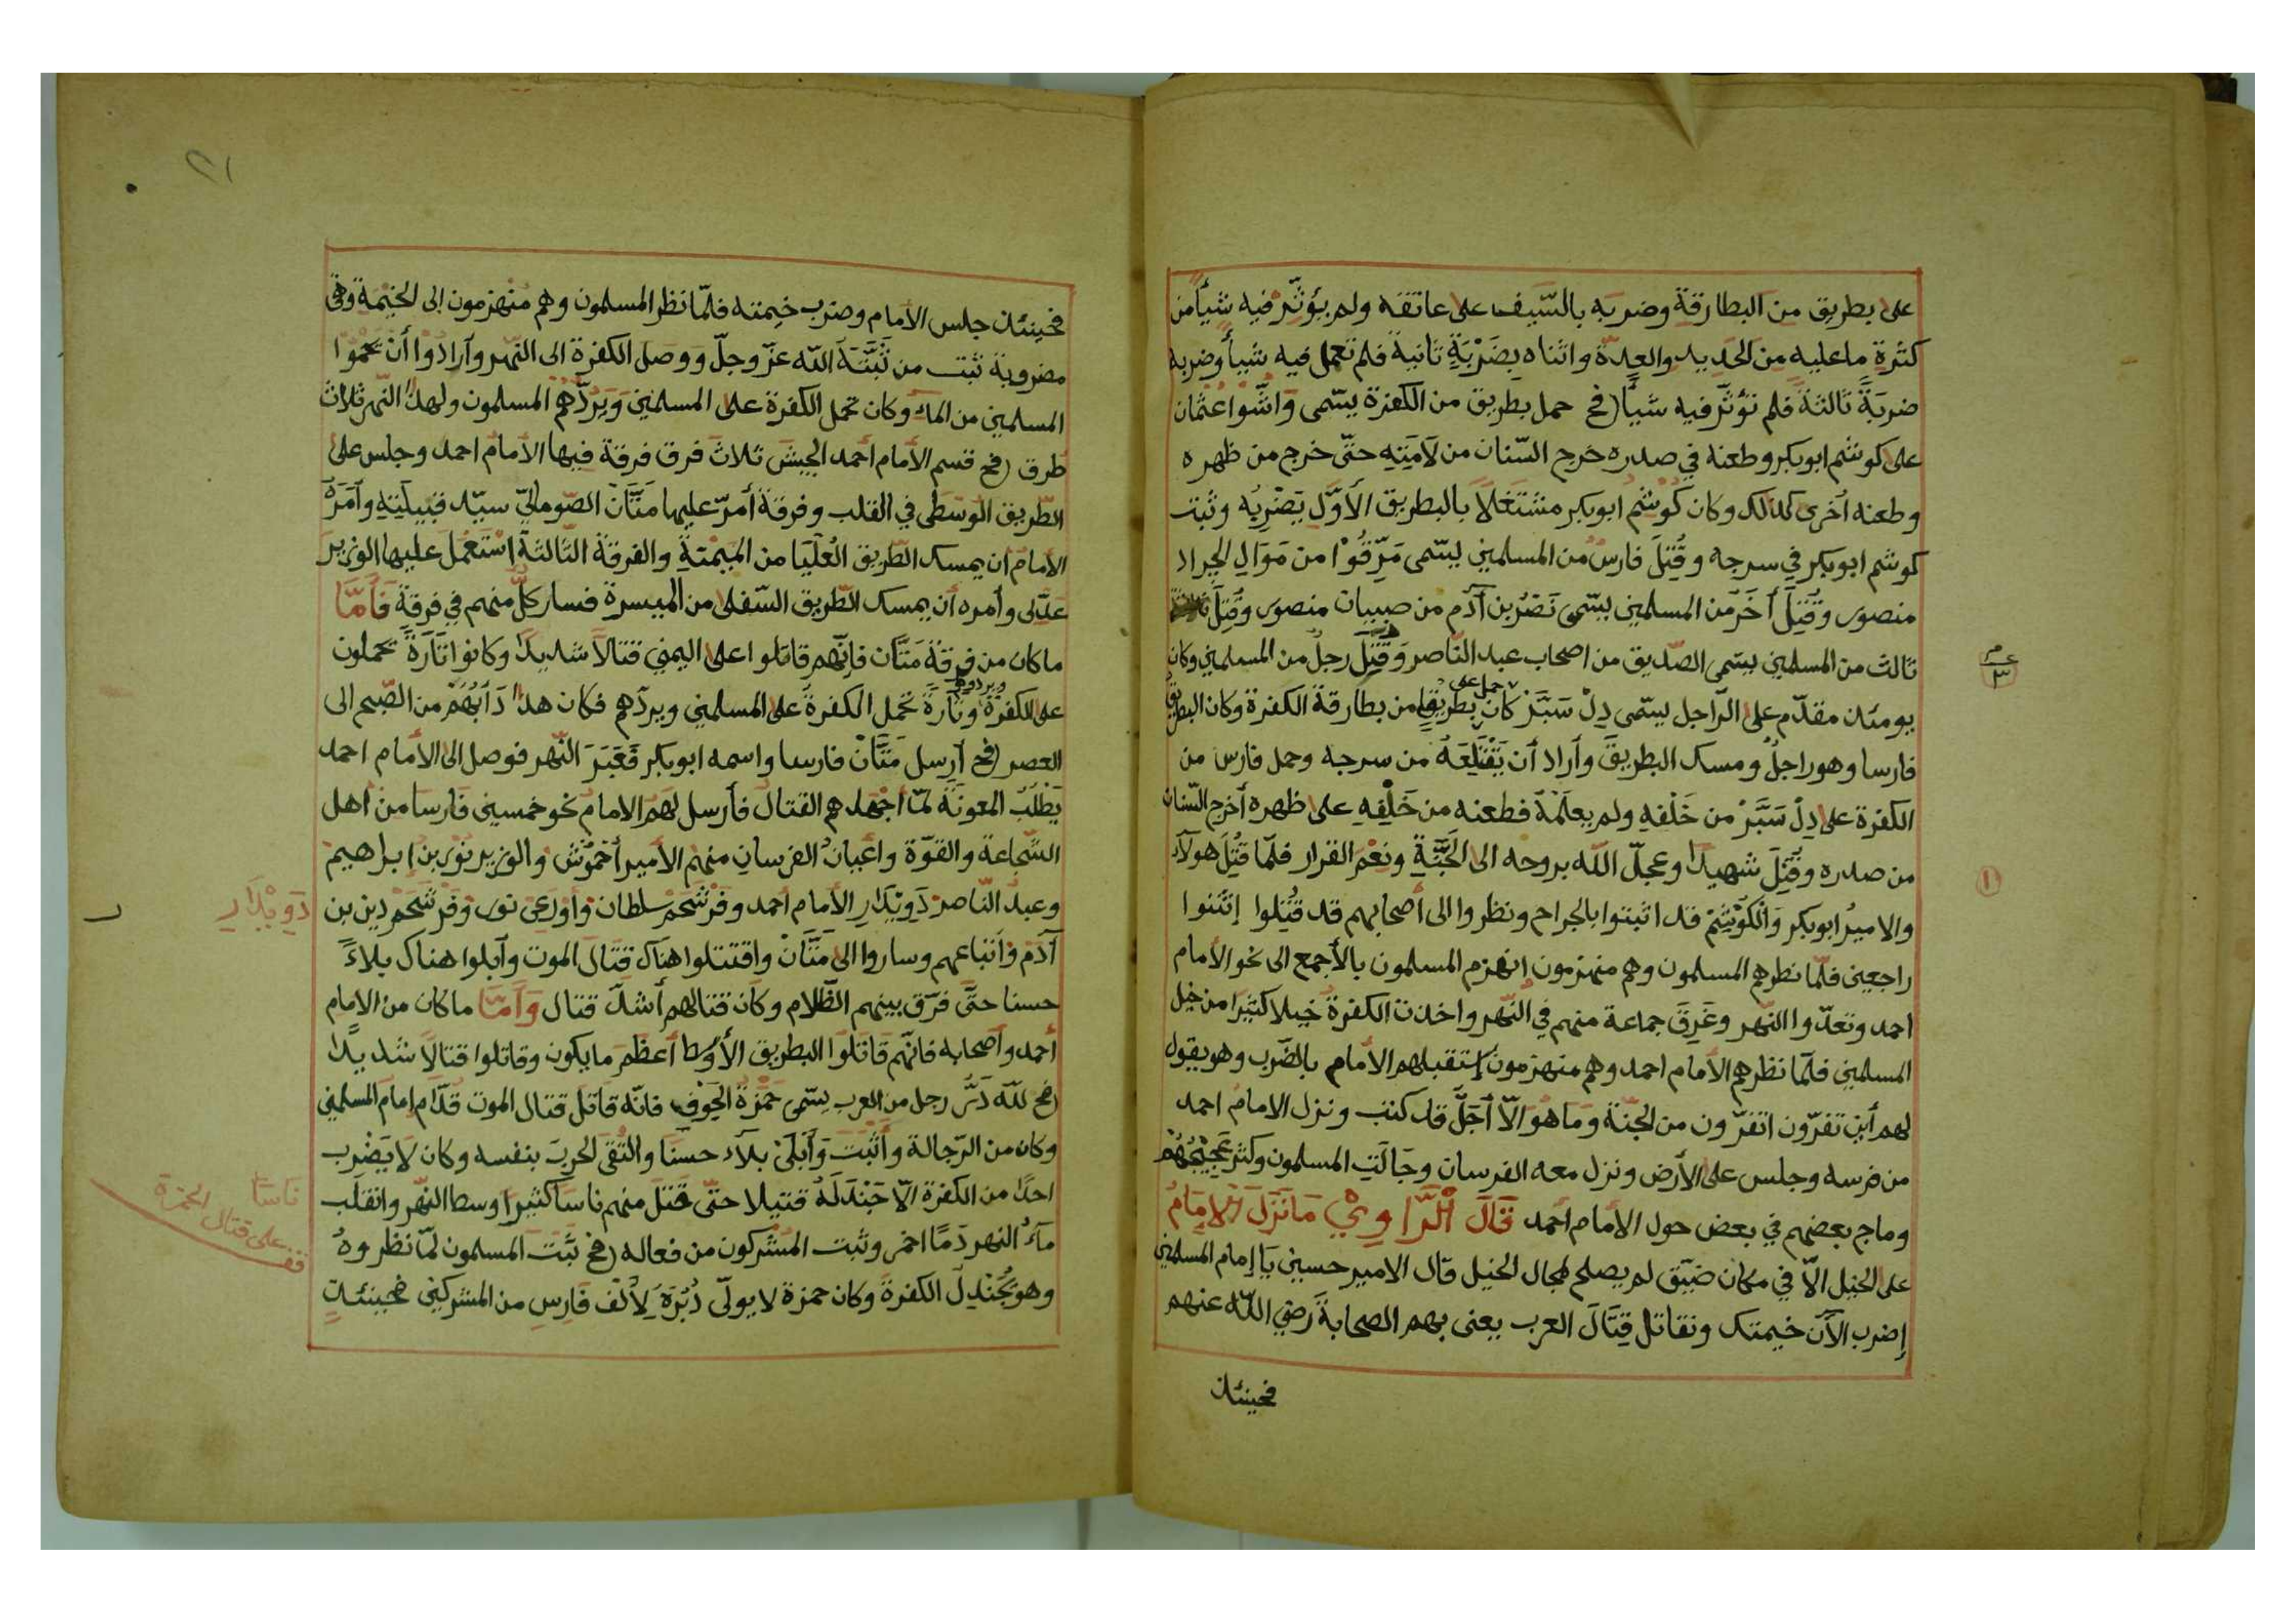 على بطريق من البطارقة وضربه بالسّيف على عاتقه ولم يؤثّر فيه شيأ من
كثرة ما عليه من الحديد والعدّة واثناه بضَرْبَةٍ ثانية فلم تعمل فيه شيأ وضربه
ضربَةً ثالثة فلم تؤثّر فيه شيأً (فح حمل بطريق من الكفرة يسّمى وَاشّوا عثمان
على كوشم ابوبكر وطعنه في صدره خرج السّنان من لَامَتِهِ حتّى خرج من ظهره
وطعنه أخرى كذلك وكان كُوشَم ابوبكر مشتغلاً بالبطريق الأوّل يَضْرِبُه وثبت
كوشم ابوبكر في سرجه وقُتِلَ فارسٌ من المسلمين يسّمى مَرْقُوْا من مَوَالِ الجراد
منصور وقُتِلَ أخَرُ من المسلمين يسّمى نَصْرُ بن آدم من صبيان منصور وقُتِلَ
ثالث من المسلمين يسمى الصّديق من اصحاب عبد النّاصر وَقُتِلَ رجلٌ من المسلمين وكان
يومئذ مقدّم على الرّاجل يسّمى دِلْ سَبَّرْ كان حمل على بطريق من بطارقة الكفرة وكان البطريق
فارسا وهو راجلٌ ومسك البطريقَ وأراد أن يَقْتَلِعَهُ من سرجه وحمل فارس من
الكفرة على دِلْ سَبَّرْ من خَلْفِهِ ولم يعلَمْهُ فطعنه من خَلْفِهِ على ظهره أخرج السّنان
من صدره وقُتِلَ شهيدًا وعجلّ الله بروحه الى الجَنَّةِ ونِعْمَ القرار فلمّا قُتِلَ هولآء
والاميرُ ابوبكر وَالْكَوْشَمْ قد اثبتوا بالجراح ونظروا الى أصحابهم قد قُتِلوا إنْثنوا
راجعين فلمّا نظرهم المسلمون وهم منهزمون إنهزم المسلمون بالأجمع الى نحو الأمام
احمد وتعدّوا النّهر وغَرِقَ جماعة منهم في النّهر واخذت الكفرةُ خيلا كثيرًا من خيل
المسلمين فلمّا نظرهم الأمام احمد وهم منهزمون إستقبلهم الأمام بالضّرب وهو يقول
لهم أين تفرّون اتفرّون من الجنّة وَما هُوَ الّا أجَلٌ قد كتب ونزل الامامُ احمد
من فرسه وجلس على الأرض ونزل معه الفرسان وجَالَتِ المسلمون وكثر عَجِيْجُهُمْ
وماج بعضهم في بعض حول الأمام أحمد قَالَ الرَّاوِيْ مَا نَزَلَ الْإمَامُ
على الخيل الّا في مكان ضيّق لم يصلح لمجال الخيل قال الامير حسين يَا إمام المسلمين
إضرب الآن خيمتك ونقاتل قِتَالَ العرب يعنى بهم الصحابةَ رضي الله عنهم
فحينئذ
عـم
٣
١
٢١
فحينئذ جلس الأمام وضرب خيمته فلمّا نظر المسلمون وهم منهزمون الى الخيْمة وهي
مضروبة ثبت من ثَبَّتَهُ الله عزّ وجلّ ووصل الكفرة الى النّهر وأرادُوا أن يحموا
المسلمين من المآء وكان تحمل الكفرة على المسلمين وَيَرُدّهم المسلمون ولهذا النّهر ثلاث
طرق (فح قسم الأمام أحمد الجيش ثلاث فرق فرقة فيها الأمام احمد وجلس على
الطّريق الوُسْطَى في القلب وفرقة أمّر عليها مَتَّان الصّوماليّ سيّد قبيلَتِهِ وأمَرَهُ
الأمام ان يمسك الطّريق العُلْيَا من الميْمَنةِ والفرقة الثّالثة استعمل عليها الوزير
عَدّلى وأمره أن يمسك الطّريق السّفلى من الميسرة فسار كلٌّ منهم في فرقةٍ فَأمّا
ما كان من فرقة مَتَّان فإنّهم قاتلوا على اليمين قتالاً شديدًا وكانوا تَارَةً يحملون
على الكفرة ويردوهم وتَارَةً تحمل الكفرةُ على المسلمين ويردّهم فكان هذا دَأبُهُمْ من الصّبح الى
العصر (فح أرسل مَتَّانْ فارسا واسمه ابوبكر فَعَبَرَ النّهر فوصل الى الأمام احمد
يَطْلُبُ المعونَةَ لمّا أجْهَدهم القتال فأرسل لهم الامامُ نحو خمسين فارسًا من اهل
الشّجاعة والقوّة واعْيَانُ الفرسان منهم الأميرُ أحْمُوْش والوزير نُوْر بن إبراهيم
وعبد النّاصر دَوِيْدَارِ الأمام أحمد وفَرْشَحَمْ سلطان وأوْرَعِى نور وَفَرْشَحَمْ دين بن
آدم وأتباعهم وساروا الى مَتَّانْ واقتتلوا هناك قتال الموت وأبلوا هناك بلآءً
حسنا حتّى فرّق بينهم الظّلام وكان قتالهم أشدّ قتال وَأَمّا ما كان من الامام
أحمد وأصحابه فانّهم قاتلوا البطريق الأوسط أعظَمَ ما يكون وقاتلوا قتالاً شديدًا
(فح للّه دَرُّ رجل من العرب يسّمى حَمْزَةُ الجَوْفِي فانّه قاتل قتال الموت قدّام إمام المسلمين
وكان من الرّجالة وأثْبَتَ وَأبْلَىْ بَلَآءً حسنًا والْتقى الحربَ بنفسه وكان لا يَضْرب
احدًا من الكفرة الّا جَنْدَلَهُ قتيلا حتّى قَتَلَ منهم ناسًا كثيرًا وسط النّهر وانقلب
مآءُ النهر دَمًا احمر وثبت المشركون من فعاله (فح ثَبَتَ المسلمون لمّا نظروهُ
وهو يُجَنْدِلُ الكفرةَ وكان حمزة لا يولّى دُبُرَهُ لِألْف فَارِسٍ من المشركين فحينئذٍ
دَوِيْدَار
نَاسًا
قف على قتال الحمزة